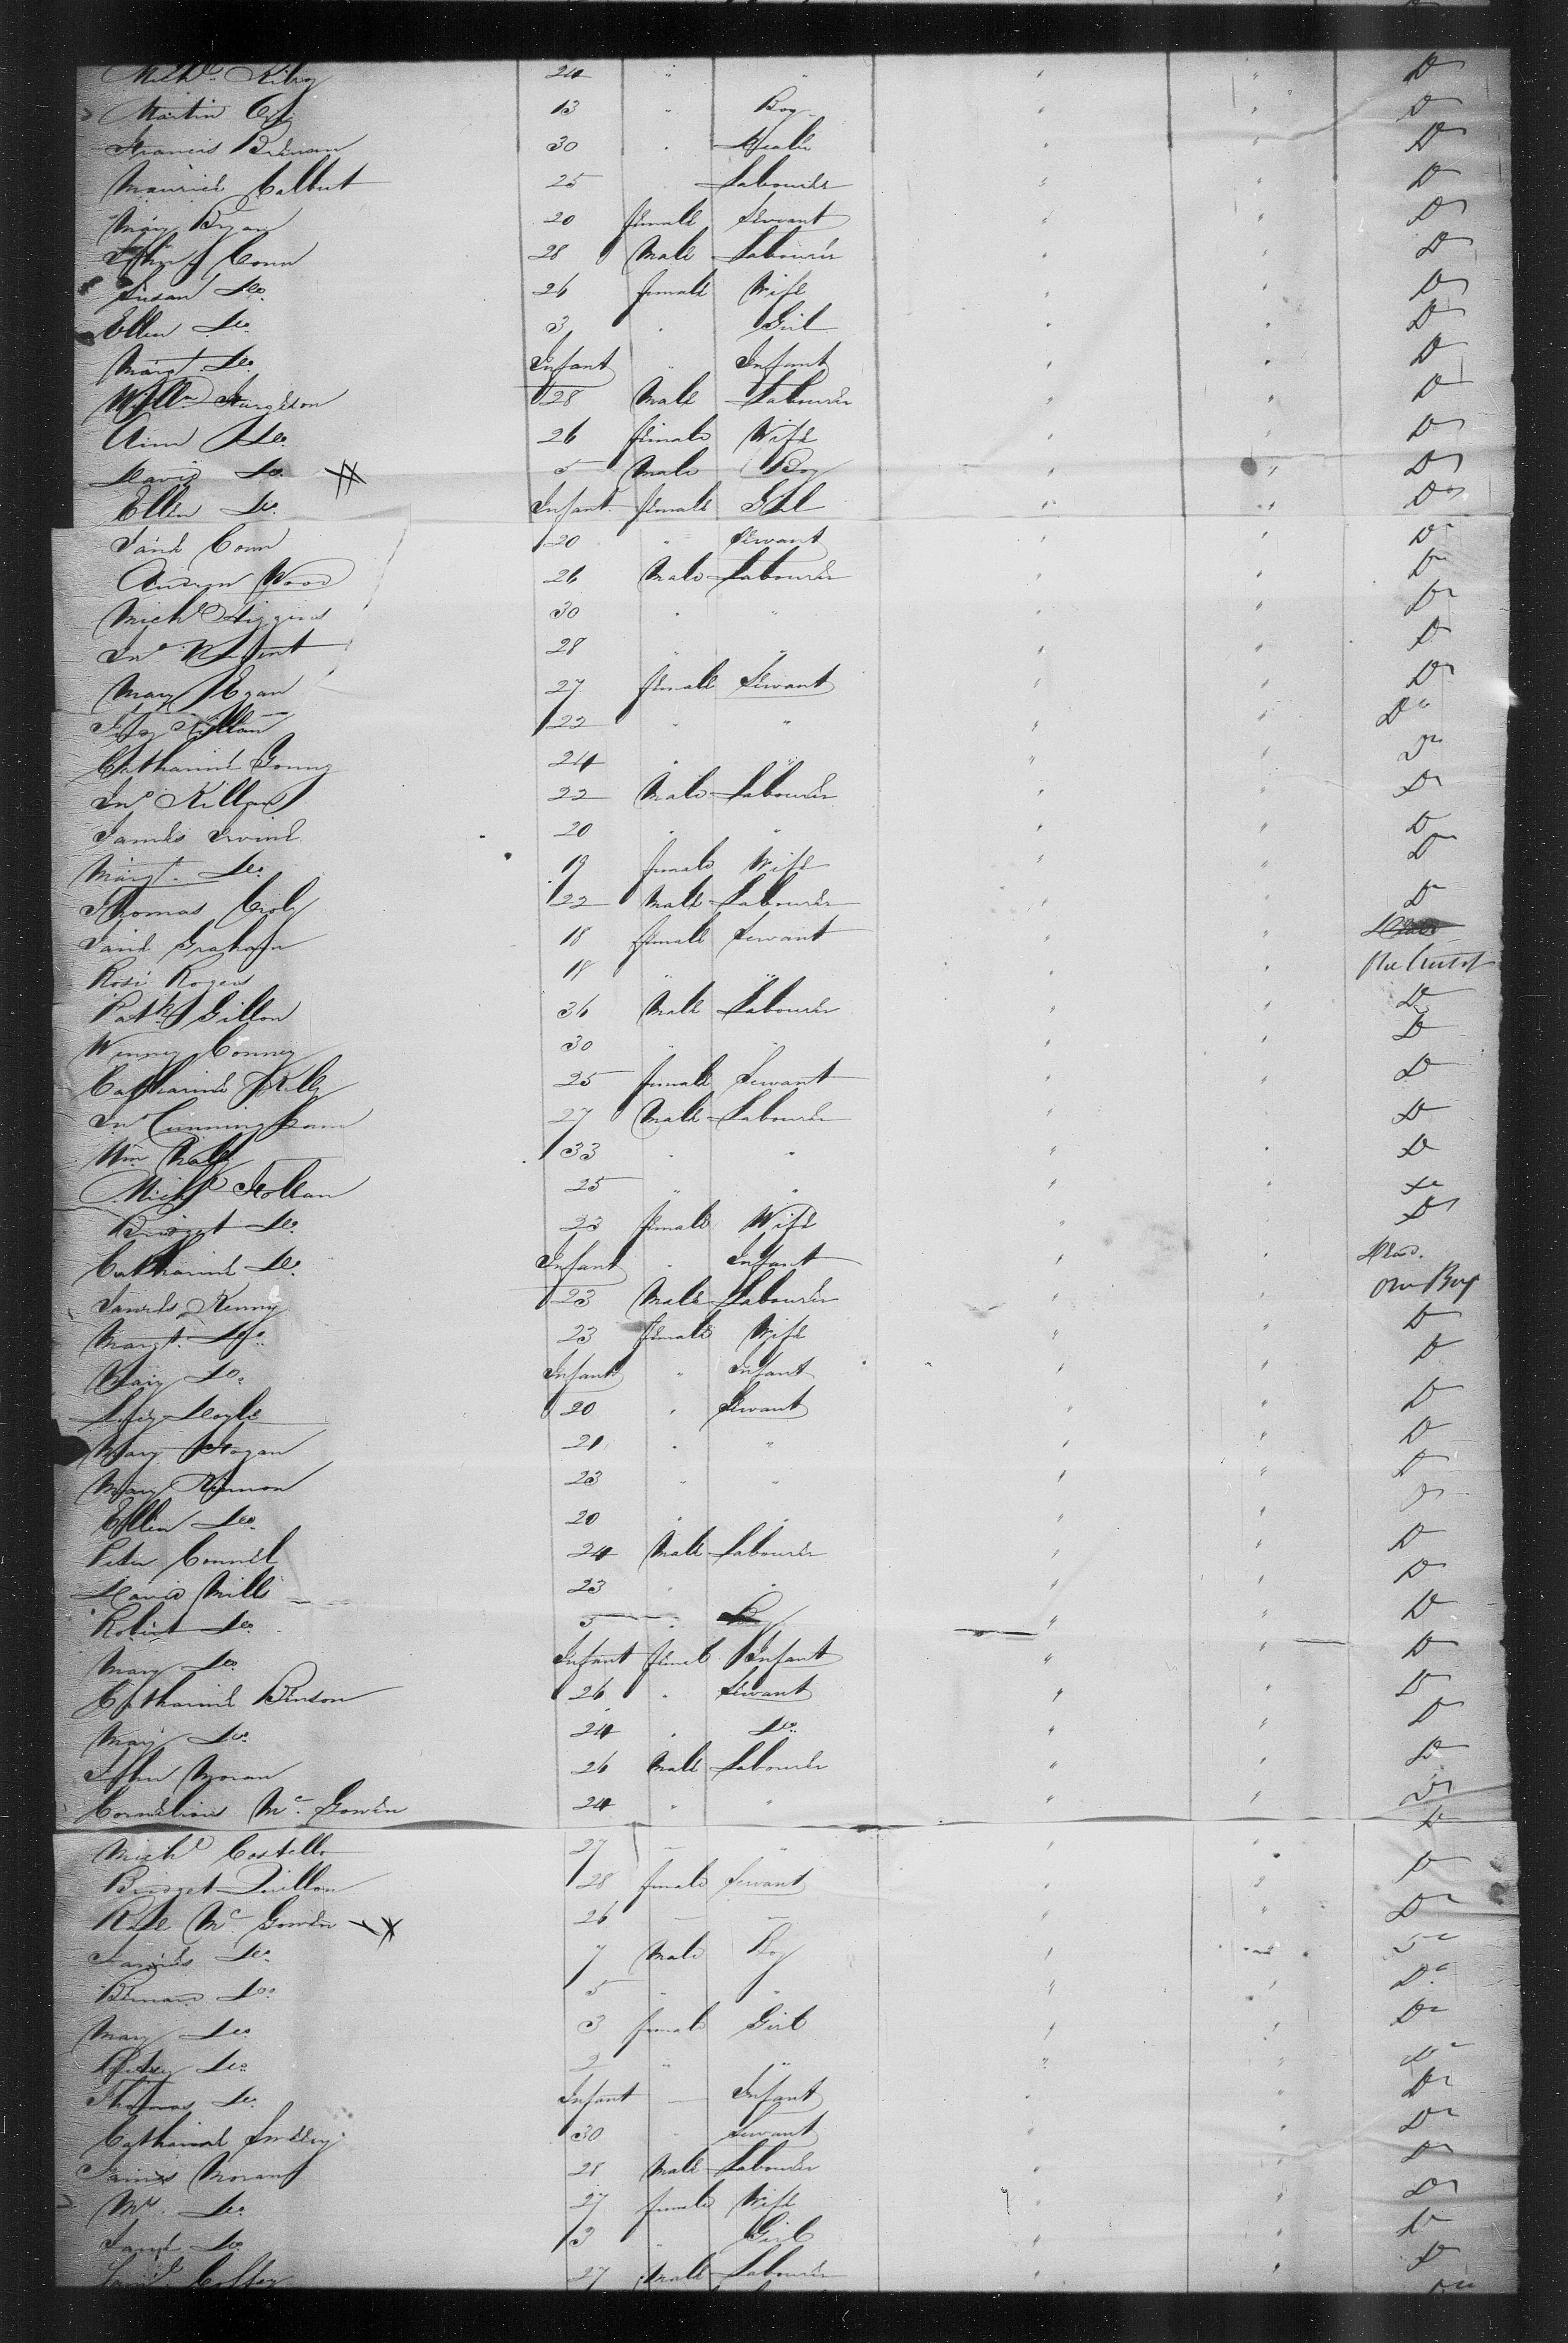 Michl Kilroy 24 " " " " Do
Martin 13 " Boy " " Do
Francis Brenan 30 " " " Do
Maurice Colbert 25 Labourer " " Do
Mary Ryan 20 female Servant " " Do
John Conn 28 Male Labourer " " Do
Susan Do. 26 female Wife " " Do
Ellen Do. 3 " Girl " " Do
Margt. Do. Infant " Infant " " Do
Willm Sturgeon 28 Male Labourer " " Do
Ann Do. 26 female Wife " " Do
David Do. 5 Male Boy " " Do
Ellen Do. Infant female Girl " " Do
Jane Conn 20 " Servant " " Do
Andrew Wood 26 Male Labourer " " Do
Michl Higgins 30 " " " " Do
Jno Nugent 28 " " " " Do
Mary Egan 27 female Servant " " Do
22 " " " " Do
Catharine 24 " " " " Do
Jno Killgan 22 Male Labourer " " Do
James Irvine 20 " " " " Do
Margt. Do. 19 female Wife " " Do
Thomas 22 Male Labourer " " Do
Jane Graham 18 female Servant " "
Rose Rogers 18 " " " "
Patk Gillon 36 Male Labourer " " Do
Winney Conney 30 " " " " Do
Catharine Kelly 25 female Servant " " Do
Jno Cunningham 27 Male Labourer " " Do
Wm 33 " " " " Do
Michl 25 " " " " Do
Bridget Do. 23 female Wife " " Do
Catharine Do. Infant " Infant " " Dead.
James Kenny 23 Male Labourer " " On Bog
Margt. Do. 23 female Wife " " Do
Mary Do. Infant " Infant " " Do
Doyle 20 " Servant " " Do
Mary Hogan 21 " " " " Do
Mary 23 " " " " Do
Ellen Do. 20 " " " " Do
Peter Connel 24 Male Labourer " " Do
David Mills 23 " " " " Do
Robert Do. 5 " Boy " " Do
Mary Do. Infant femel Infant " " Do
Catharine Benson 26 " Servant " " Do
Mary Do. 24 " Do. " " Do
John Moran 26 Male Labourer " " Do
Cornelious Mc. Gowen 24 " " " " Do
Michl Costello 27 " " " " Do
Bridget 28 female Servant " " Do
Rose Mc. Gowen 26 " " " " Do
James Do. 7 Male Boy " " Do
Bernard Do. 5 " " " " Do
Mary Do. 3 female Girl " " Do
Betsy Do. 2 " " " " Do
Thomas Do. Infant " Infant " " Do
Catharine Smiley 30 " Servant " " Do
James Moran 28 Male Labourer " " Do
Do. 27 female Wife " " Do
Jane Do. 3 " Girl " " Do
Coffey 27 Male Labourer " " Do